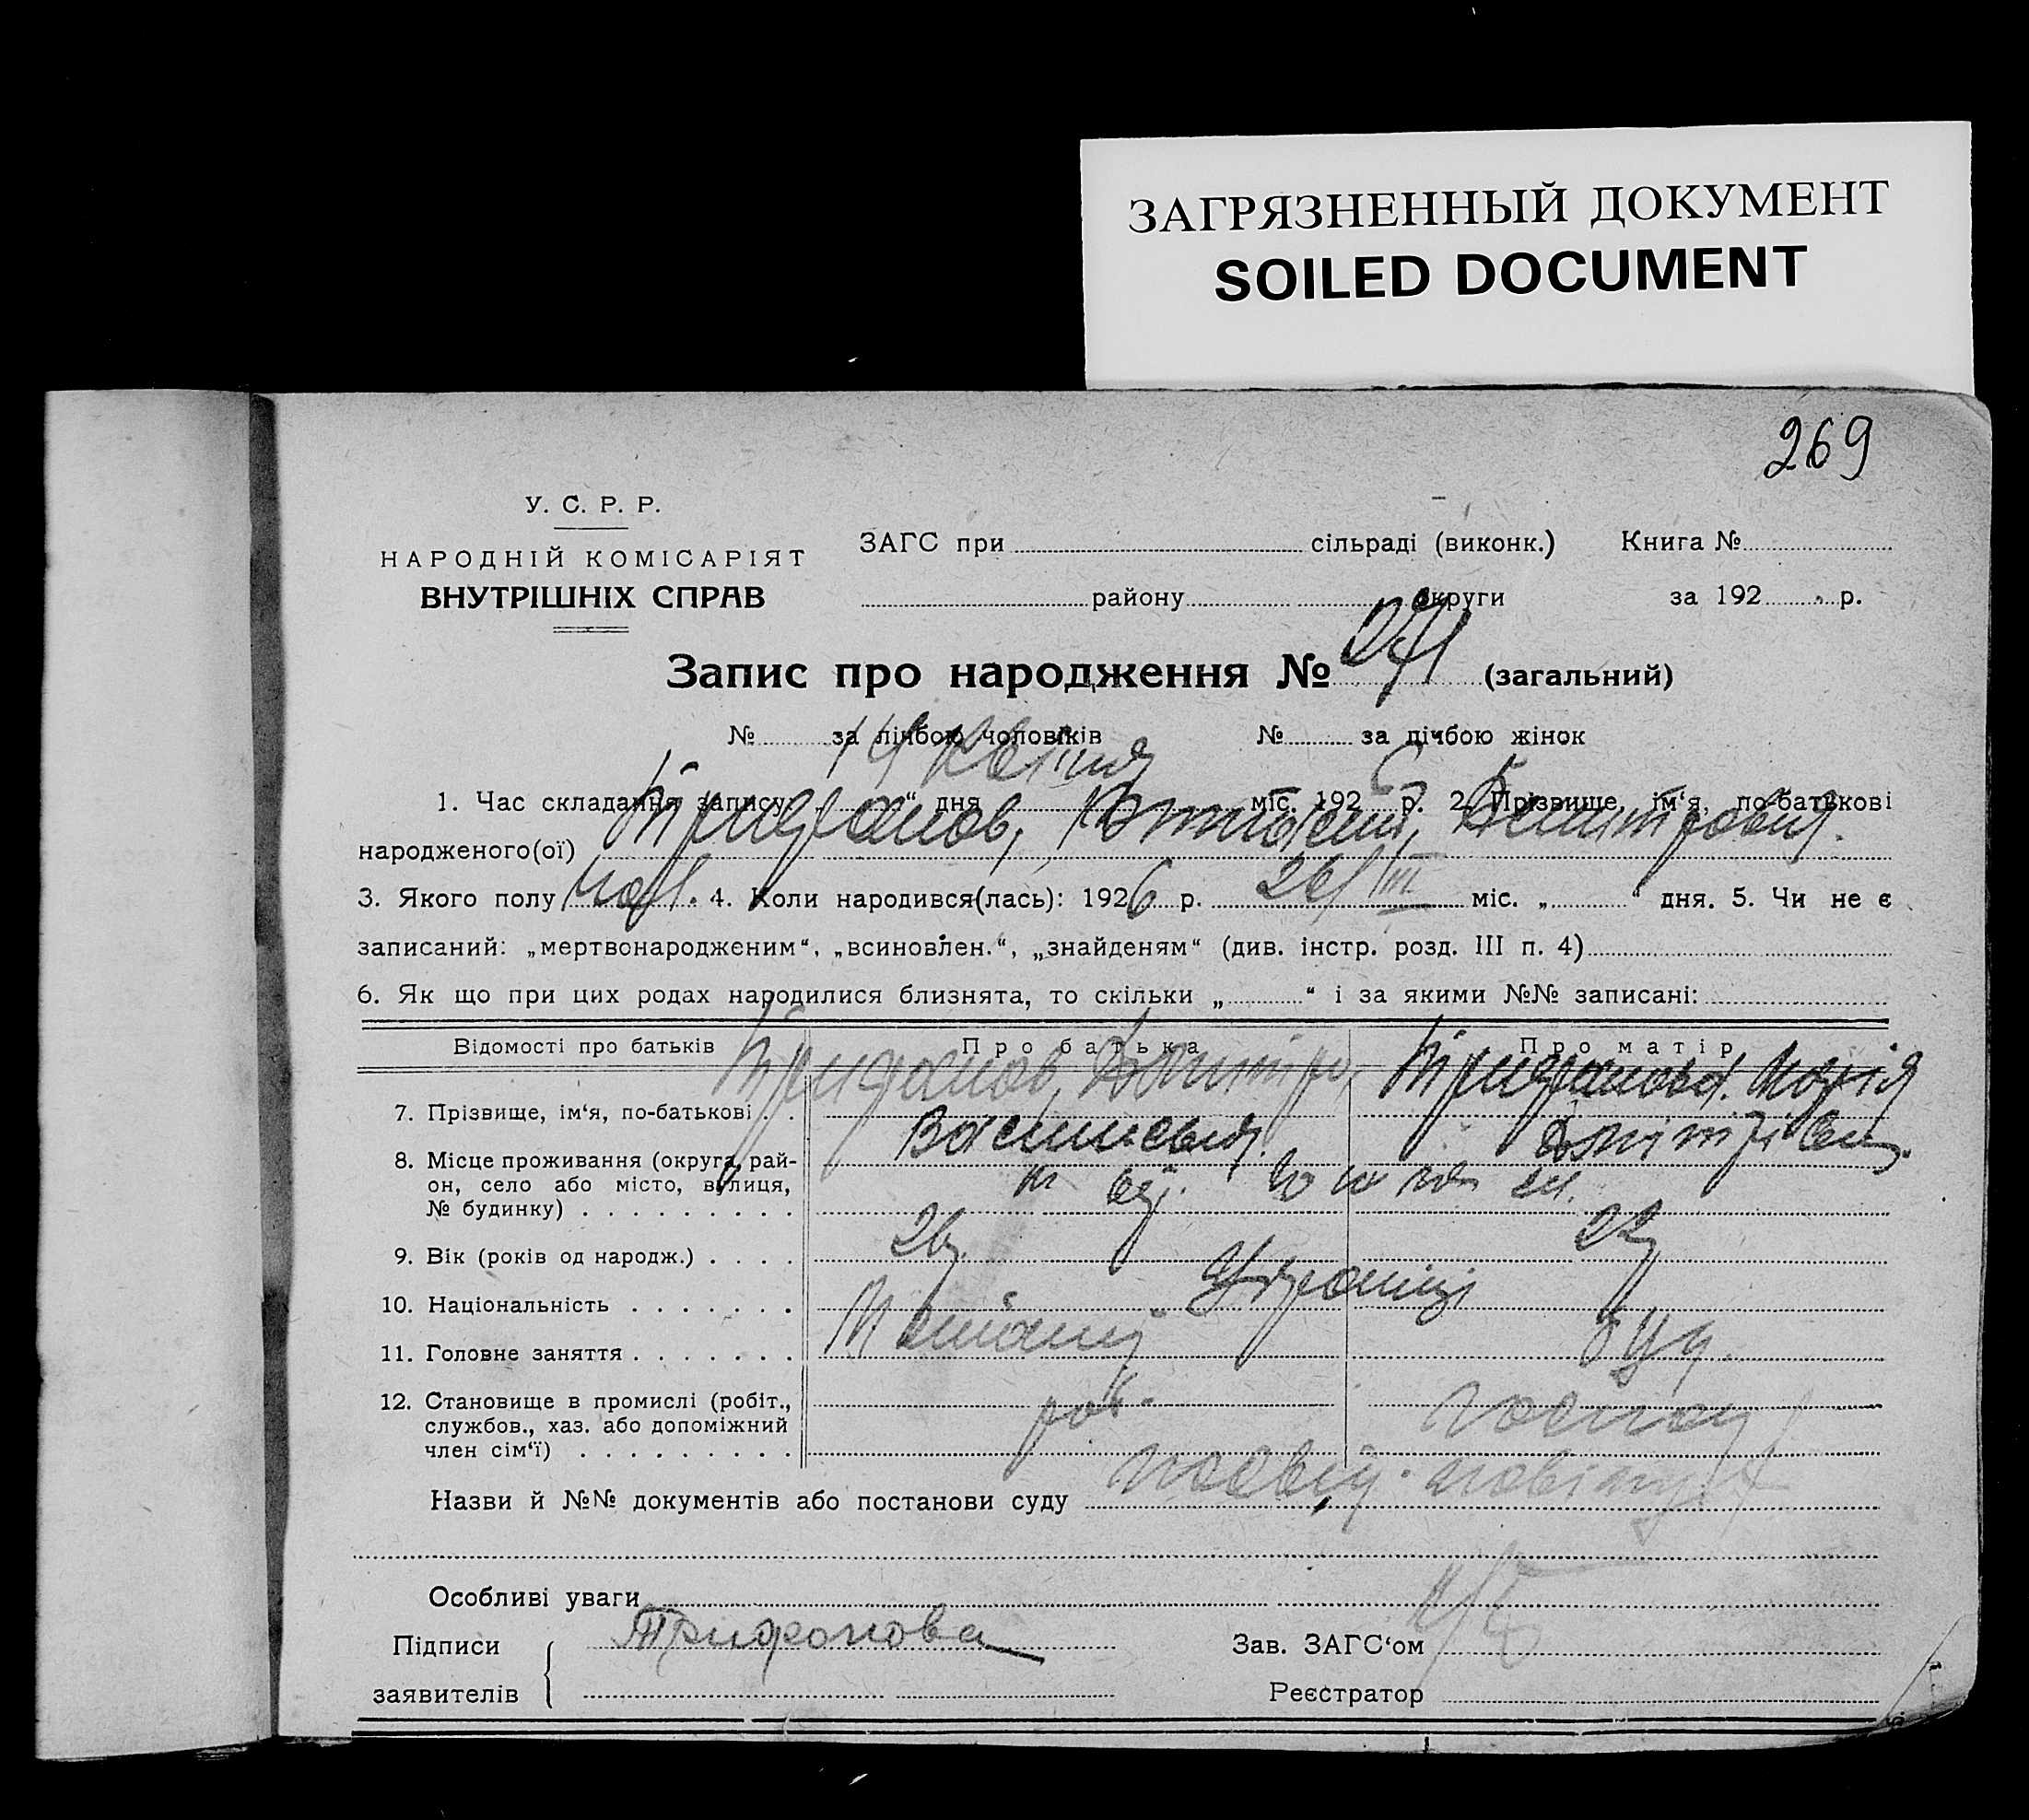 ЗАГРЯЗНЕННЫЙ ДОКУМЕНТ
SOILED DOCUMENT
269
У. С. Р. Р.
НАРОДНІЙ КОМІСАРІЯТ
ВНУТРІШНІХ СПРАВ
ЗАГС при сільраді (виконк.) Книга №
району округи за 192 р.
Запис про народження № 271 (загальний)
№ за лічбою чоловіків № за лічбою жінок
14 Квітня 6
1. Час складання запису „ “ дня міс. 192 р. 2. Прізвище, ім‘я, по-батькові
народженого(ої) Трифонов, Дмитрович.
3. Якого полу чол. 4. Коли народився(лась): 1926 р. 26/III міс. „ “ дня. 5. Чи не є
записаний: „мертвонародженим“, „всиновлен.“, „знайденям“ (див. інстр. розд. III п. 4)
6. Як що при цих родах народилися близнята, то скільки „ “ і за якими №№ записані:
Відомості про батьків Про батька Про матір
7. Прізвище, ім‘я, по-батькові Трифонов, Дмитро, Трифонова Марія
Васильович. Дмитрівн.
8. Місце проживання (округа, рай-
он, село або місто, вулиця,
№ будинку)
9. Вік (років од народж.) 26 22
10. Національність Українці
11. Головне заняття
12. Становище в промислі (робіт.,
службов., хаз. або допоміжний
член сім‘ї) роб.
Назви й №№ документів або постанови суду
Особливі уваги
Підписи Трифонова Зав. ЗАГС‘ом
заявителів Реєстратор